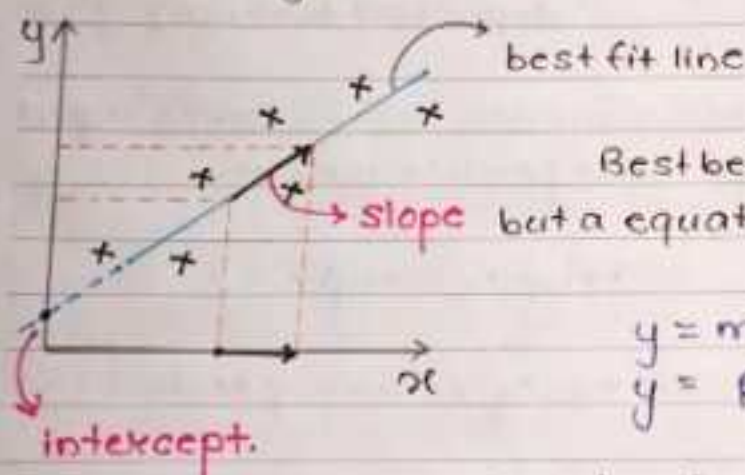 y
best fit line
Best be
slope but a equat
y = m
x
y =
intercept.